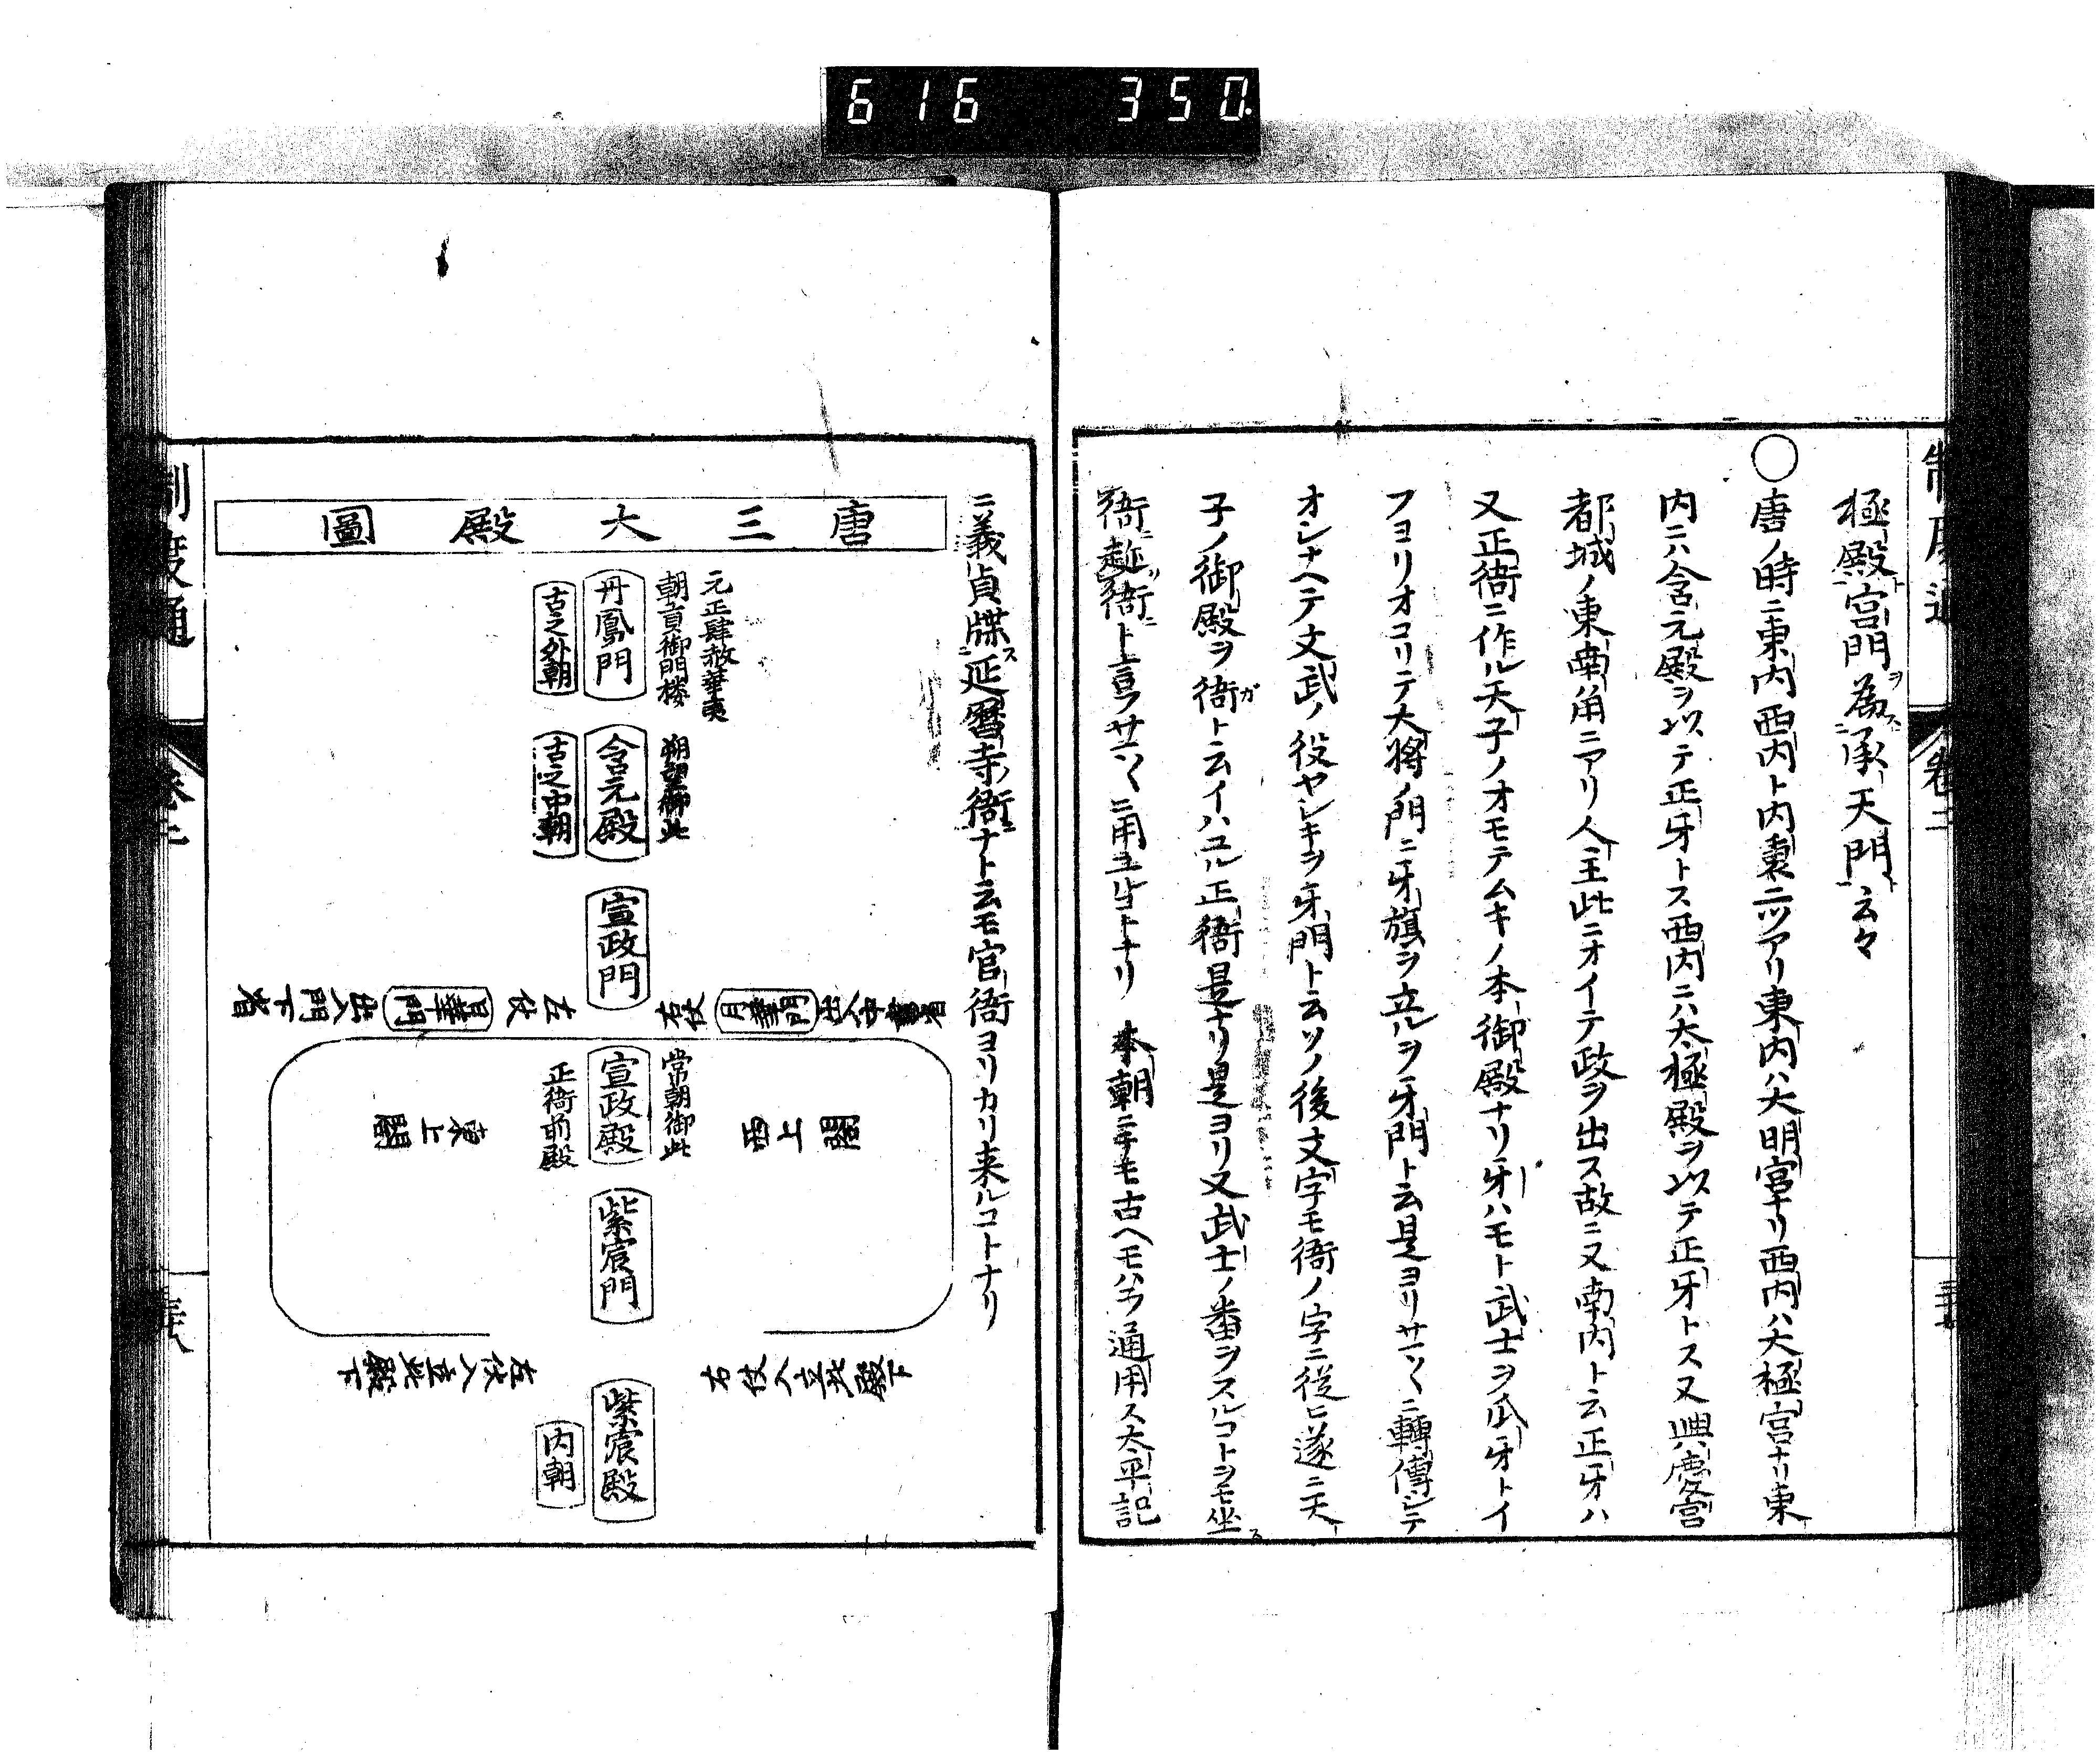 616 350
極殿宮門為承天門云々
○唐ノ時ニ東内西内ト内裏二ツアリ東内ハ大明宮ナリ西内ハ大極宮ナリ東
内ニハ含元殿ヲ以テ正牙トス西内ニハ太極殿ヲ以テ正牙トス又興慶宮
都城ノ東南角ニアリ人主此ニオイテ政ヲ出ス故ニ又南内ト云正牙ハ
又正衙ニ作ル天子ノオモテムキノ本御殿ナリ牙ハモト武士ヲ爪牙トイ
フヨリオコリテ大将ノ門ニ牙旗ヲ立ルヲ牙門ト云是ヨリサマ〱ニ轉傳シテ
オシナヘテ文武ノ役ヤシキヲ牙門ト云ソノ後文字モ衙ノ字ニ従ヒ遂ニ天
子ノ御殿ヲ衙ト云イハユル正衙是ナリ是ヨリ又武士ノ番ヲスルコトヲモ坐
衙趂衙ト言フサマ〱ニ用ユルコトナリ 本朝ニテモ古ヘモハラ通用ス太平記
ニ義貞牒延暦寺衙ナト云モ官衙ヨリカリ来ルコトナリ
唐三大殿圖
元正肆赦華夷
朝貢御門楼
丹鳳門
古之外朝
朔望御此
含元殿
古之中朝
宣政門
右仗 月華門 出入中書省
左仗 日華門 出入門下省
常朝御此
宣政殿
正衙前殿
西上閤
東上閤
紫宸門
右仗人立此殿下
左仗人立此殿下
紫宸殿
内朝
制度通 巻二